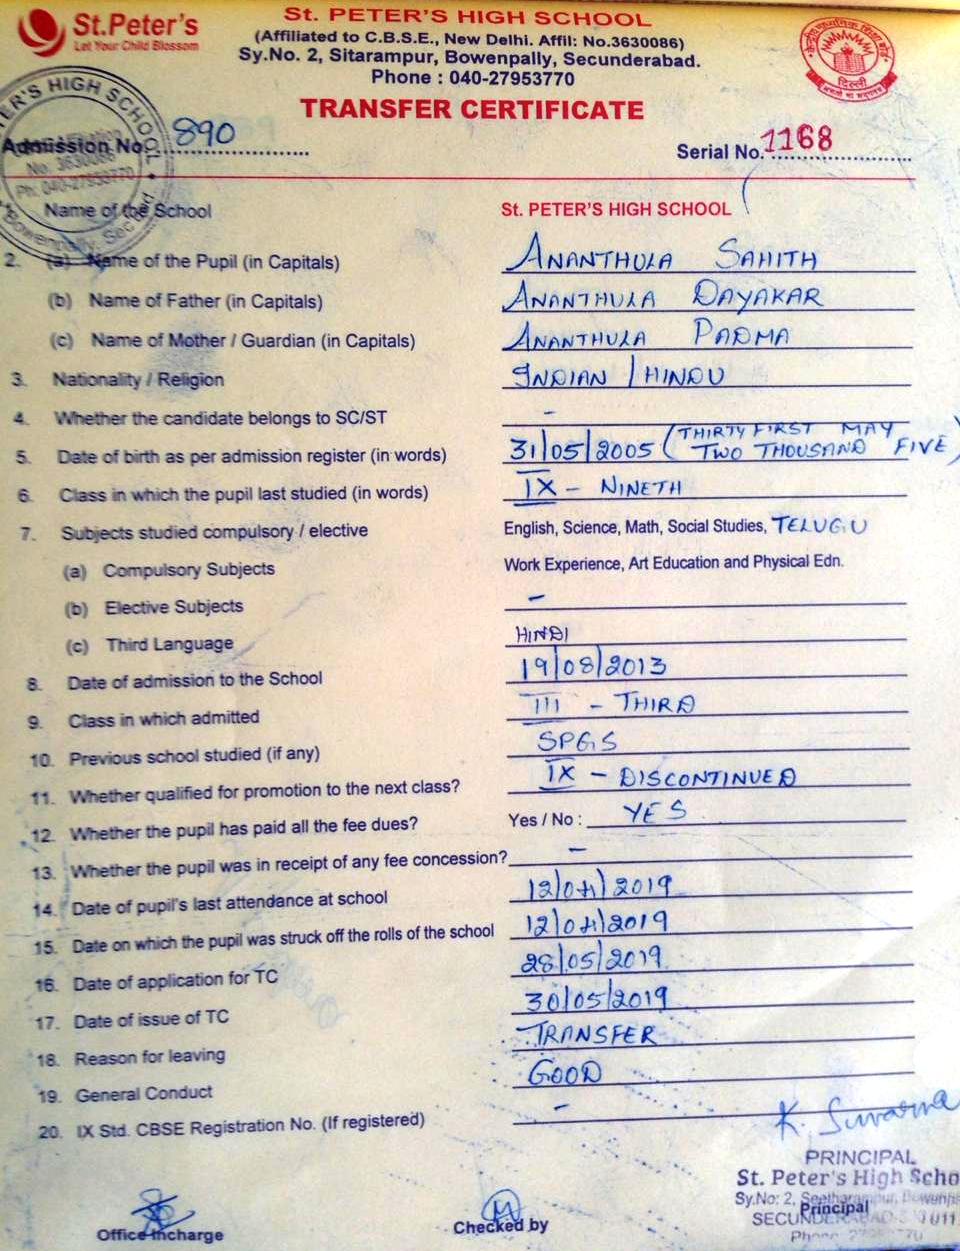 St.Peter's
Let Your Child Blossom
St. PETER'S HIGH SCHOOL
(Affiliated to C.B.S.E., New Delhi. Affil: No.3630086)
Sy.No. 2, Sitarampur, Bowenpally, Secunderabad.
Phone : 040-27953770
TRANSFER CERTIFICATE
Admission No. 890
Serial No. 1168
Name of the School St. PETER'S HIGH SCHOOL
2. (a) Name of the Pupil (in Capitals) ANANTHULA SAHITH
(b) Name of Father (in Capitals) ANANTHULA DAYAKAR
(c) Name of Mother / Guardian (in Capitals) ANANTHULA PADMA
3. Nationality / Religion INDIAN / HINDU
4. Whether the candidate belongs to SC/ST -
5. Date of birth as per admission register (in words) 31/05/2005 (THIRTY FIRST MAY TWO THOUSAND FIVE)
6. Class in which the pupil last studied (in words) IX - NINETH
7. Subjects studied compulsory / elective English, Science, Math, Social Studies, TELUGU
(a) Compulsory Subjects Work Experience, Art Education and Physical Edn.
(b) Elective Subjects -
(c) Third Language HINDI
8. Date of admission to the School 19/08/2013
9. Class in which admitted III - THIRD
10. Previous school studied (if any) SPGS
11. Whether qualified for promotion to the next class? IX - DISCONTINUED
12. Whether the pupil has paid all the fee dues? Yes / No : YES
13. Whether the pupil was in receipt of any fee concession? -
14. Date of pupil's last attendance at school 12/04/2019
15. Date on which the pupil was struck off the rolls of the school 12/04/2019
16. Date of application for TC 28/05/2019
17. Date of issue of TC 30/05/2019
18. Reason for leaving TRANSFER
19. General Conduct GOOD
20. IX Std. CBSE Registration No. (If registered) -
K. Suvarna
PRINCIPAL
St. Peter's High Scho
Sy.No: 2, Seetharampur,
Principal
Office Incharge
Checked by